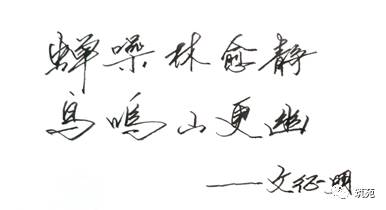 蝉噪林愈静
鸟鸣山更幽
——文征明
筑苑